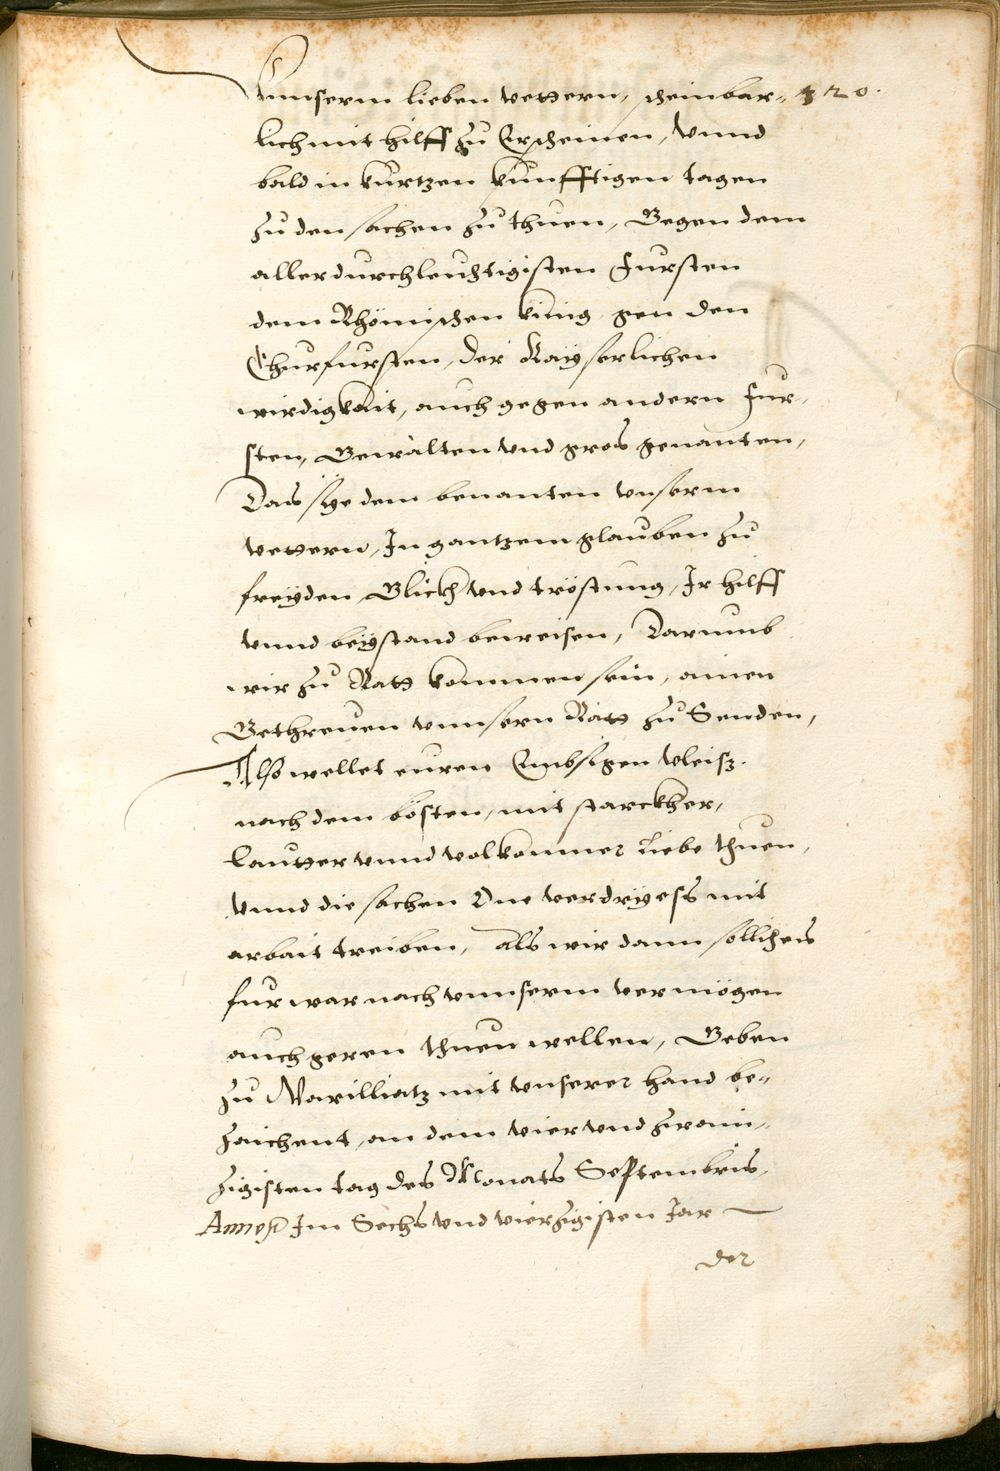 Vnnserm lieben vettern, scheinbar- 320.
lich mit hilff zu Erscheinen, Vnnd
bald in kurtzen kunfftigen tagen
zu den sachen zu thuen, Gegen dem
allerdurchleuchtigisten Fursten
dem Rhömischen künig gen den
Churfursten, der Kayserlichen
wirdigkait, auch gegen andern Fur-
sten, Gewalten vnd gros genanten,
Das sye dem benanten vnserm
vettern, In gantzem glauben zu
freyden Glickh vnd tröstung, Ir hilff
vnnd beystand beweisen, Darumb
wir zu Ratt kommen sein, ainen
Gethreuen vnnsern Rätt zu Senden,
Also wellet euren Embsigen vleisz.
nach dem bösten, mit starckher,
lautter vnnd volkommer liebe thuen,
Vnnd die sachen One verdryess mit
arbait treiben, als wir dann sollichs
fur war nach vnnserm vermögen
auch geren thuen wellen, Geben
zu Marilliatz mit vnserer hand be-
zaichent, an dem vier vnd zwain-
zigisten tag des Monats Septembris,
Im Sechs vnd vierzigisten Jar
der